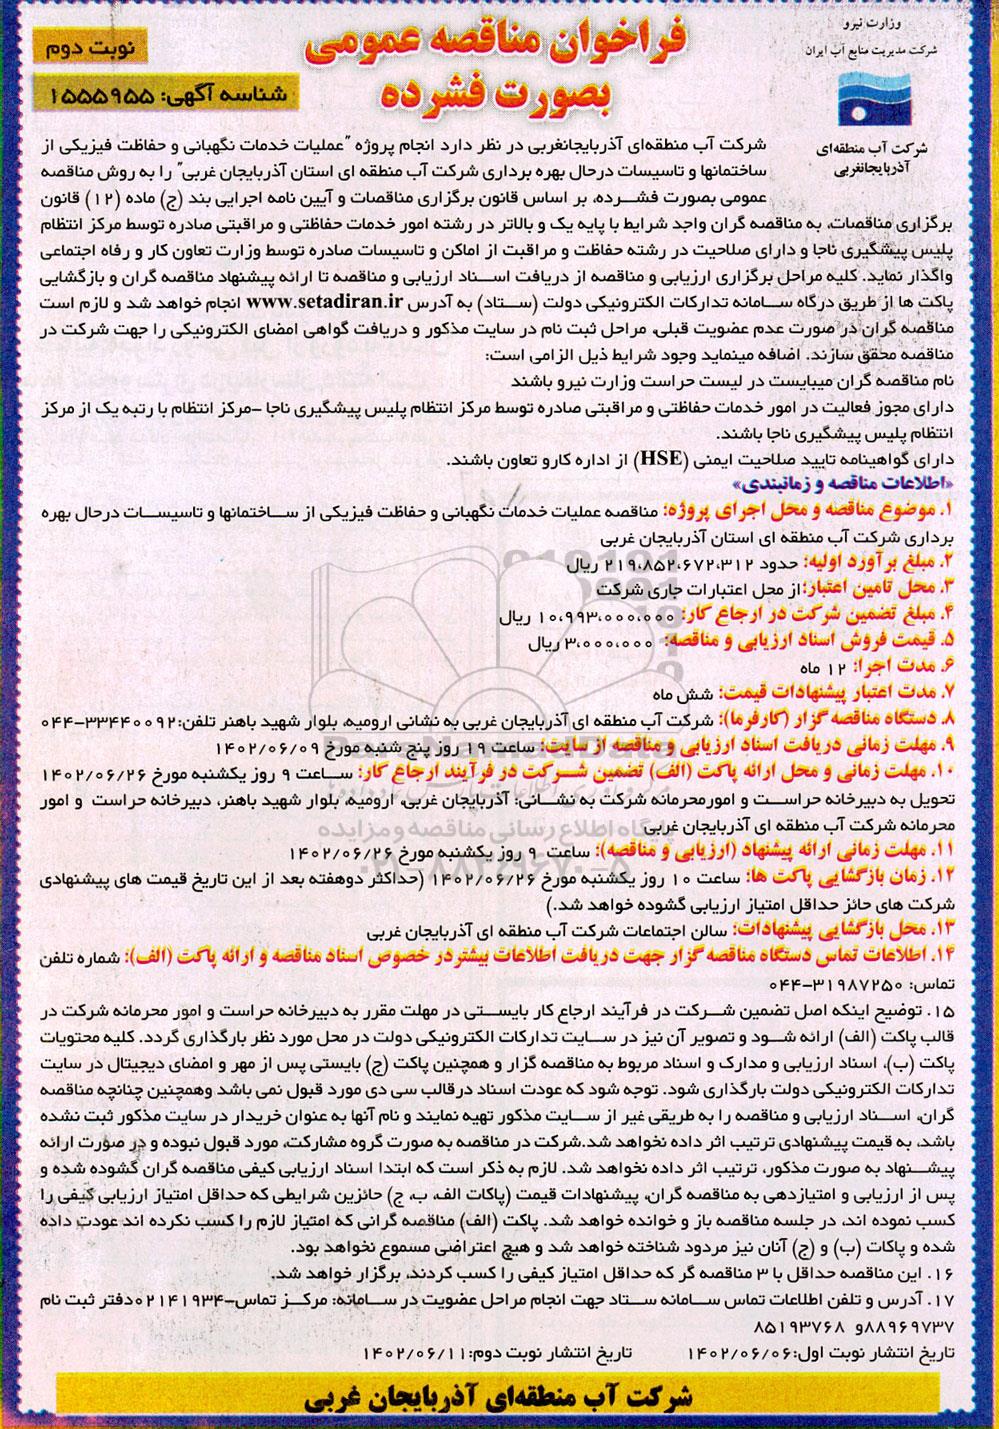 وزارت نیرو
شرکت مدیریت منابع آب ایران
شرکت آب منطقه‌ای
آذربایجانغربی
فراخوان مناقصه عمومی
بصورت فشرده
نوبت دوم
شناسه آگهی: ۱۵۵۵۹۵۵
شرکت آب منطقه‌ای آذربایجانغربی در نظر دارد انجام پروژه "عملیات خدمات نگهبانی و حفاظت فیزیکی از
ساختمانها و تاسیسات درحال بهره برداری شرکت آب منطقه ای استان آذربایجان غربی" را به روش مناقصه
عمومی بصورت فشرده، بر اساس قانون برگزاری مناقصات و آیین نامه اجرایی بند (ج) ماده (۱۲) قانون
برگزاری مناقصات، به مناقصه گران واجد شرایط با پایه یک و بالاتر در رشته امور خدمات حفاظتی و مراقبتی صادره توسط مرکز انتظام
پلیس پیشگیری ناجا و دارای صلاحیت در رشته حفاظت و مراقبت از اماکن و تاسیسات صادره توسط وزارت تعاون کار و رفاه اجتماعی
واگذار نماید. کلیه مراحل برگزاری ارزیابی و مناقصه از دریافت اسناد ارزیابی و مناقصه تا ارائه پیشنهاد مناقصه گران و بازگشایی
پاکت ها از طریق درگاه سامانه تدارکات الکترونیکی دولت (ستاد) به آدرس www.setadiran.ir انجام خواهد شد و لازم است
مناقصه گران در صورت عدم عضویت قبلی، مراحل ثبت نام در سایت مذکور و دریافت گواهی امضای الکترونیکی را جهت شرکت در
مناقصه محقق سازند. اضافه مینماید وجود شرایط ذیل الزامی است:
نام مناقصه گران میبایست در لیست حراست وزارت نیرو باشند
دارای مجوز فعالیت در امور خدمات حفاظتی و مراقبتی صادره توسط مرکز انتظام پلیس پیشگیری ناجا -مرکز انتظام با رتبه یک از مرکز
انتظام پلیس پیشگیری ناجا باشند.
دارای گواهینامه تایید صلاحیت ایمنی (HSE) از اداره کارو تعاون باشند.
«اطلاعات مناقصه و زمانبندی»
۱. موضوع مناقصه و محل اجرای پروژه: مناقصه عملیات خدمات نگهبانی و حفاظت فیزیکی از ساختمانها و تاسیسات درحال بهره
برداری شرکت آب منطقه ای استان آذربایجان غربی
۲. مبلغ برآورد اولیه: حدود ۲۱۹،۸۵۲،۶۷۲،۳۱۲ ریال
۳. محل تامین اعتبار: از محل اعتبارات جاری شرکت
۴. مبلغ تضمین شرکت در ارجاع کار: ۱۰،۹۹۳،۰۰۰،۰۰۰ ریال
۵. قیمت فروش اسناد ارزیابی و مناقصه: ۳،۰۰۰،۰۰۰ ریال
۶. مدت اجرا: ۱۲ ماه
۷. مدت اعتبار پیشنهادات قیمت: شش ماه
۸. دستگاه مناقصه گزار (کارفرما): شرکت آب منطقه ای آذربایجان غربی به نشانی ارومیه، بلوار شهید باهنر تلفن:۳۳۴۴۰۰۹۲-۰۴۴
۹. مهلت زمانی دریافت اسناد ارزیابی و مناقصه از سایت: ساعت ۱۹ روز پنج شنبه مورخ ۱۴۰۲/۰۶/۰۹
۱۰. مهلت زمانی و محل ارائه پاکت (الف) تضمین شرکت در فرآیند ارجاع کار: ساعت ۹ روز یکشنبه مورخ ۱۴۰۲/۰۶/۲۶
تحویل به دبیرخانه حراست و امورمحرمانه شرکت به نشانی: آذربایجان غربی، ارومیه، بلوار شهید باهنر، دبیرخانه حراست و امور
محرمانه شرکت آب منطقه ای آذربایجان غربی
۱۱. مهلت زمانی ارائه پیشنهاد (ارزیابی و مناقصه): ساعت ۹ روز یکشنبه مورخ ۱۴۰۲/۰۶/۲۶
۱۲. زمان بازگشایی پاکت ها: ساعت ۱۰ روز یکشنبه مورخ ۱۴۰۲/۰۶/۲۶ (حداکثر دوهفته بعد از این تاریخ قیمت های پیشنهادی
شرکت های حائز حداقل امتیاز ارزیابی گشوده خواهد شد.)
۱۳. محل بازگشایی پیشنهادات: سالن اجتماعات شرکت آب منطقه ای آذربایجان غربی
۱۴. اطلاعات تماس دستگاه مناقصه گزار جهت دریافت اطلاعات بیشتر در خصوص اسناد مناقصه و ارائه پاکت (الف): شماره تلفن
تماس: ۳۱۹۸۷۲۵۰-۰۴۴
۱۵. توضیح اینکه اصل تضمین شرکت در فرآیند ارجاع کار بایستی در مهلت مقرر به دبیرخانه حراست و امور محرمانه شرکت در
قالب پاکت (الف) ارائه شود و تصویر آن نیز در سایت تدارکات الکترونیکی دولت در محل مورد نظر بارگذاری گردد. کلیه محتویات
پاکت (ب)، اسناد ارزیابی و مدارک و اسناد مربوط به مناقصه گزار و همچنین پاکت (ج) بایستی پس از مهر و امضای دیجیتال در سایت
تدارکات الکترونیکی دولت بارگذاری شود. توجه شود که عودت اسناد درقالب سی دی مورد قبول نمی باشد وهمچنین چنانچه مناقصه
گران، اسناد ارزیابی و مناقصه را به طریقی غیر از سایت مذکور تهیه نمایند و نام آنها به عنوان خریدار در سایت مذکور ثبت نشده
باشد، به قیمت پیشنهادی ترتیب اثر داده نخواهد شد.شرکت در مناقصه به صورت گروه مشارکت، مورد قبول نبوده و در صورت ارائه
پیشنهاد به صورت مذکور، ترتیب اثر داده نخواهد شد. لازم به ذکر است که ابتدا اسناد ارزیابی کیفی مناقصه گران گشوده شده و
پس از ارزیابی و امتیازدهی به مناقصه گران، پیشنهادات قیمت (پاکات الف، ب، ج) حائزین شرایطی که حداقل امتیاز ارزیابی کیفی را
کسب نموده اند، در جلسه مناقصه باز و خوانده خواهد شد. پاکت (الف) مناقصه گرانی که امتیاز لازم را کسب نکرده اند عودت داده
شده و پاکات (ب) و (ج) آنان نیز مردود شناخته خواهد شد و هیچ اعتراضی مسموع نخواهد بود.
۱۶. این مناقصه حداقل با ۳ مناقصه گر که حداقل امتیاز کیفی را کسب کردند، برگزار خواهد شد.
۱۷. آدرس و تلفن اطلاعات تماس سامانه ستاد جهت انجام مراحل عضویت در سامانه: مرکز تماس-۰۲۱۴۱۹۳۴دفتر ثبت نام
۸۸۹۶۹۷۳۷و ۸۵۱۹۳۷۶۸
تاریخ انتشار نوبت اول:۱۴۰۲/۰۶/۰۶ تاریخ انتشار نوبت دوم:۱۴۰۲/۰۶/۱۱
شرکت آب منطقه‌ای آذربایجان غربی
پایگاه اطلاع رسانی مناقصه و مزایده